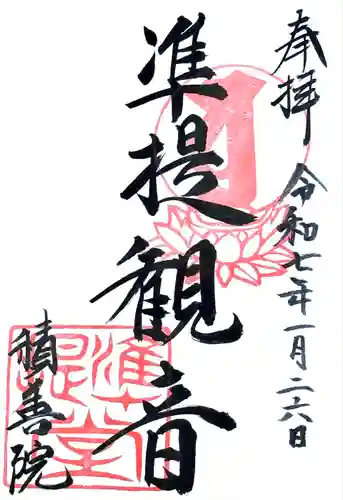 奉拝
令和七年一月二六日
準提観音
積善院
準提堂